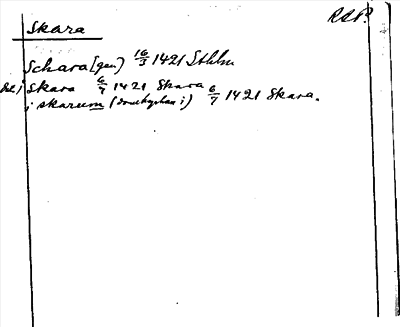 Skara RAP?
Schara (gen) 16/3 1421 Sthlm
Dat. i Skara 6/7 1421 Skara
i skarum (domkyrkan i) 6/7 1421 Skara.